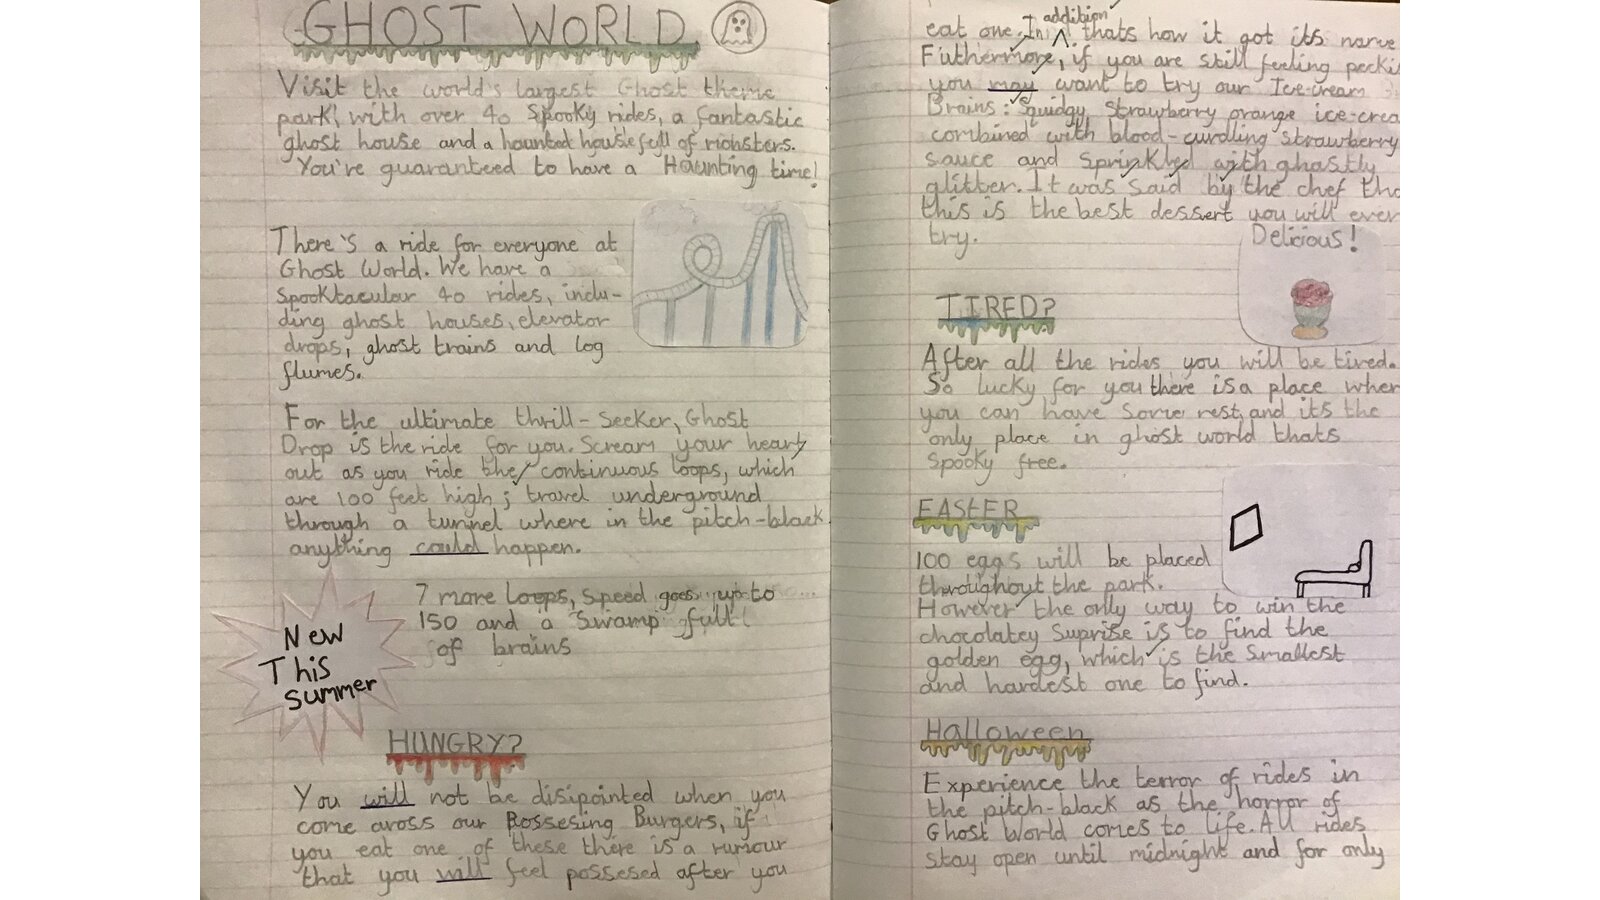 GHOST WORLD
Visit the world's largest Ghost theme
park, with over 40 Spooky rides, a fantastic
ghost house and a haunted house full of monsters.
You're guaranteed to have a Haunting time!
There's a ride for everyone at
Ghost World. We have a
Spooktacular 40 rides, inclu-
ding ghost houses, elevator
drops, ghost trains and log
flumes.
For the ultimate thrill-Seeker, Ghost
Drop is the ride for you. Scream your heart
out as you ride the continuous loops, which
are 100 feet high; travel underground
through a tunnel where in the pitch-black
anything could happen.
New
This
Summer
7 more Loops, Speed goes up to
150 and a Swamp full
of brains
HUNGRY?
You will not be disipointed when you
come aross our Possesing Burgers, if
you eat one of these there is a rumour
that you will feel possesed after you
eat one. In addition thats how it got its name
Futhermore, if you are still feeling pecki
you may want to try our Ice-cream
Brains: Squidgy Strawberry orange ice-crea
combined with blood-curdling Strawberry
sauce and Sprinkled with ghastly
glitter. It was Said by the chef tha
this is the best dessert you will ever
try.
Delicious!
TIRED?
After all the rides you will be tired.
So lucky for you there is a place wher
you can have Some rest, and its the
only place in ghost world thats
Spooky free.
EASTER
100 eggs will be placed
thoroughout the park.
However the only way to win the
chocolatey Suprise is to find the
golden egg, which is the Smallest
and hardest one to find.
Halloween
Experience the terror of rides in
the pitch-black as the horror of
Ghost World comes to life. All rides
Stay open until midnight and for only